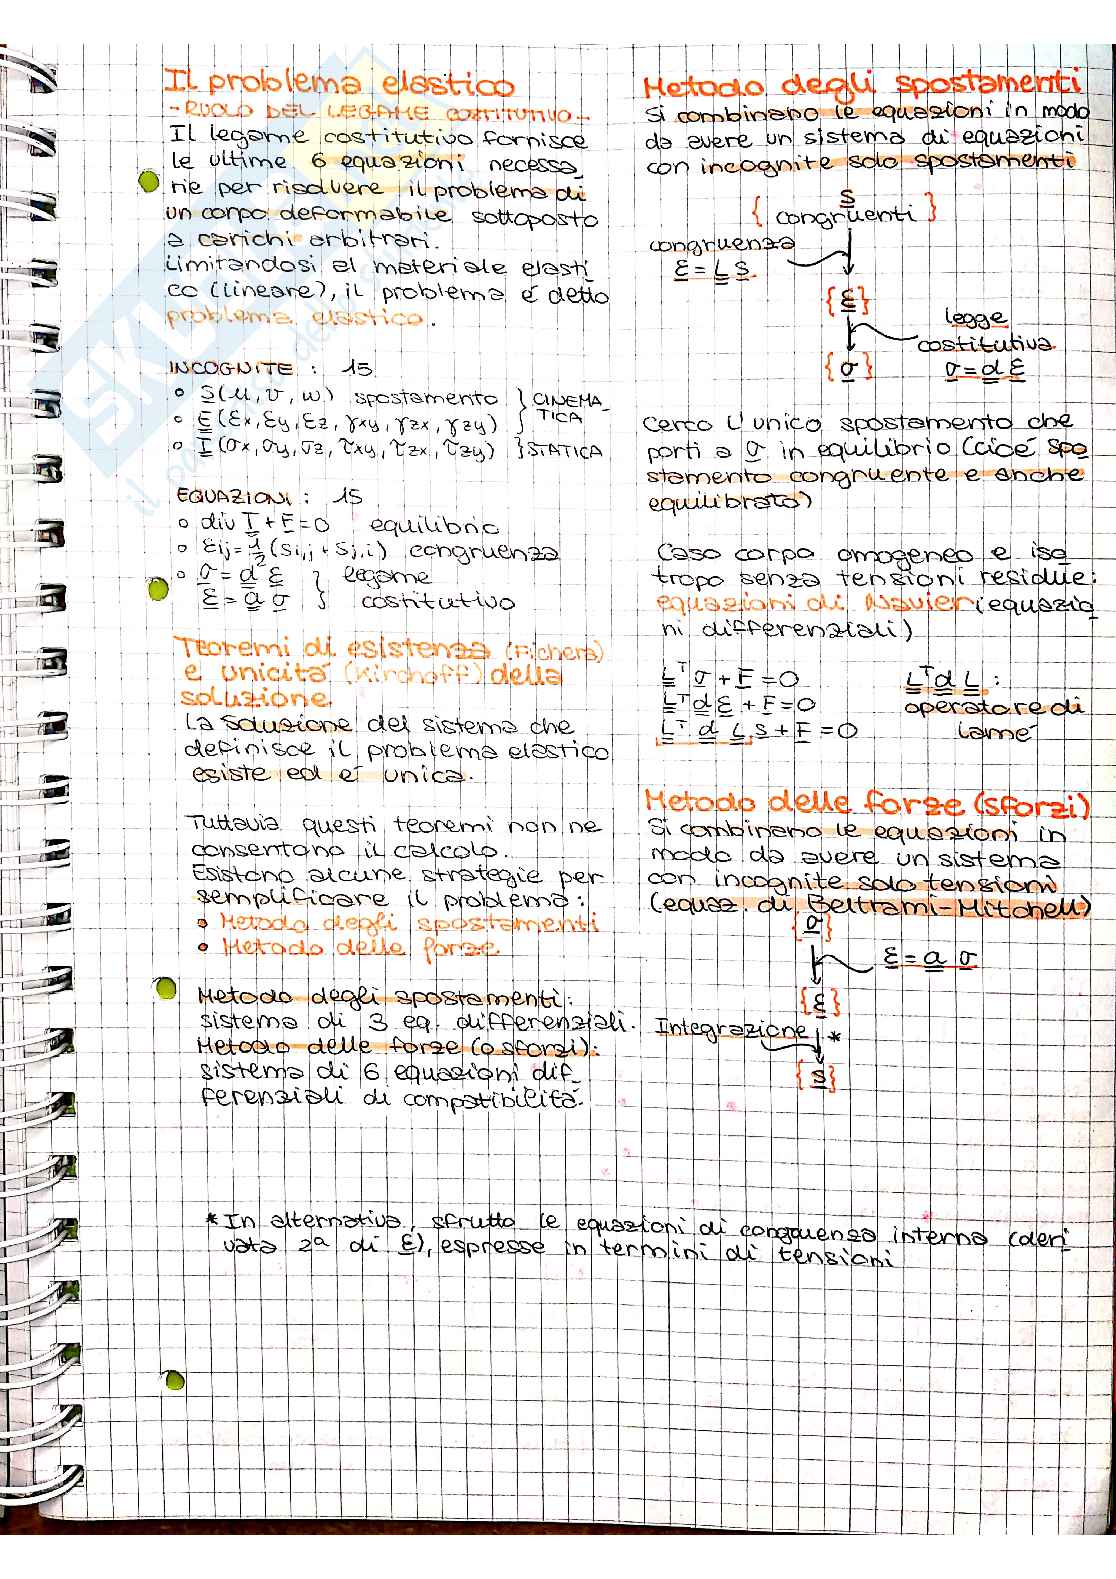 Il problema elastico
- RUOLO DEL LEGAME COSTITUTIVO -
Il legame costitutivo fornisce
le ultime 6 equazioni necessa
rie per risolvere il problema di
un corpo deformabile sottoposto
a carichi arbitrari.
Limitandosi al materiale elasti
co (lineare), il problema é detto
problema elastico.
INCOGNITE : 15
• S(u, v, w) spostamento } CINEMA_
• E (εx, εy, εz, γxy, γzx, γzy) } TICA
• T (σx, σy, σz, τxy, τzx, τzy) } STATICA
EQUAZIONI : 15
• div T + F = 0 equilibrio
• εij = 1/2 (si,j + sj,i) congruenza
• σ = d ε } legame
ε = a σ } costitutivo
Teoremi di esistenza (Fichera)
e unicitá (Kirchoff) della
soluzione.
La soluzione del sistema che
definisce il problema elastico
esiste ed é unica.
Tuttavia questi teoremi non ne
consentono il calcolo.
Esistono alcune strategie per
semplificare il problema :
• Metodo degli spostamenti
• Metodo delle forze
Metodo degli spostamenti:
sistema di 3 eq. differenziali.
Metodo delle forze (o sforzi):
sistema di 6 equazioni dif_
ferenziali di compatibilitá.
Metodo degli spostamenti
Si combinano le equazioni in modo
da avere un sistema di equazioni
con incognite solo spostamenti
s
{ congruenti }
congruenza
ε = L s
{ε}
legge
costitutiva
{σ} σ = d ε
Cerco l'unico spostamento che
porti a σ in equilibrio (cioé spo
stamento congruente e anche
equilibrato)
Caso corpo omogeneo e iso
tropo senza tensioni residue:
equazioni di Navier (equazio
ni differenziali)
L^T σ + F = 0 L^T d L :
L^T d ε + F = 0 operatore di
L^T d L s + F = 0 Lamé
Metodo delle forze (sforzi)
Si combinano le equazioni in
modo da avere un sistema
con incognite solo tensioni
(equaz. di Beltrami-Mitchell)
{σ}
ε = a σ
{ε}
Integrazione *
{s}
* In alternativa, sfrutto le equazioni di congruenza interna (deri
vata 2ª di ε), espresse in termini di tensioni